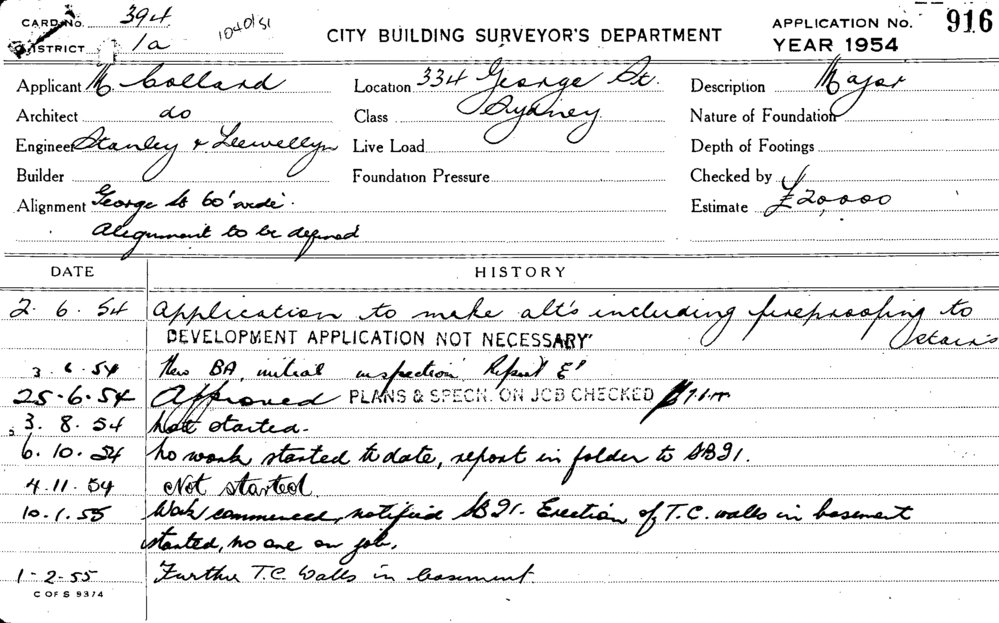 CARD No. 394
DISTRICT 1a
1040/51
CITY BUILDING SURVEYOR'S DEPARTMENT
APPLICATION No. 916
YEAR 1954
Applicant M Collard
Location 334 George St.
Description Major
Architect do
Class Sydney
Nature of Foundation
Engineer Stanley & Llewellyn
Live Load
Depth of Footings
Builder
Foundation Pressure
Checked by
Alignment George St 60' wide.
Estimate £20,000
Alignment to be defined
DATE HISTORY
2. 6. 54 Application to make alt's including fireproofing to
stairs
DEVELOPMENT APPLICATION NOT NECESSARY
3. 6. 54 New BA, initial inspection. Report
25-6.54 Approved PLANS & SPECN. ON JOB CHECKED
3. 8. 54 Not started.
6. 10. 54 No work started to date, report in folder to SBI.
4.11.54 Not started.
10.1.55 Work commenced, notified SBI. Erection of T.C. walls in basement
started, no one on job.
1-2-55 Further T.C. Walls in basement.
C OF S 9374